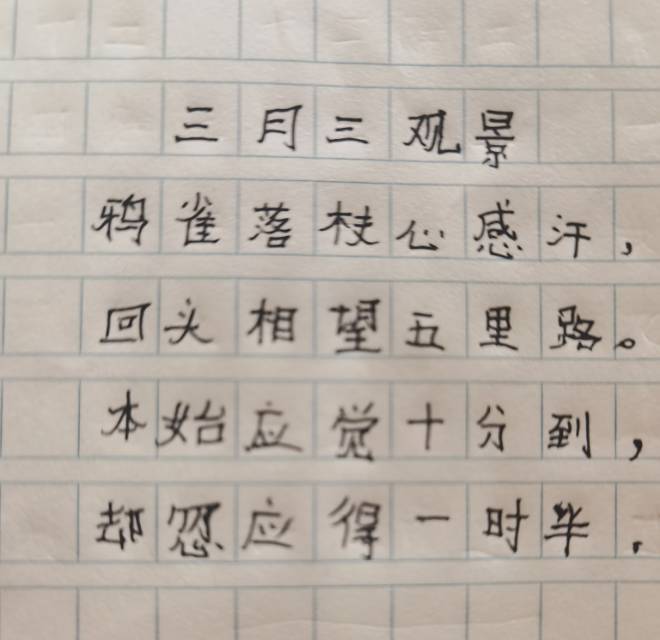 三月三观景
鸦雀落枝心感汗，
回头相望五里路。
本始应觉十分到，
却忽应得一时半.